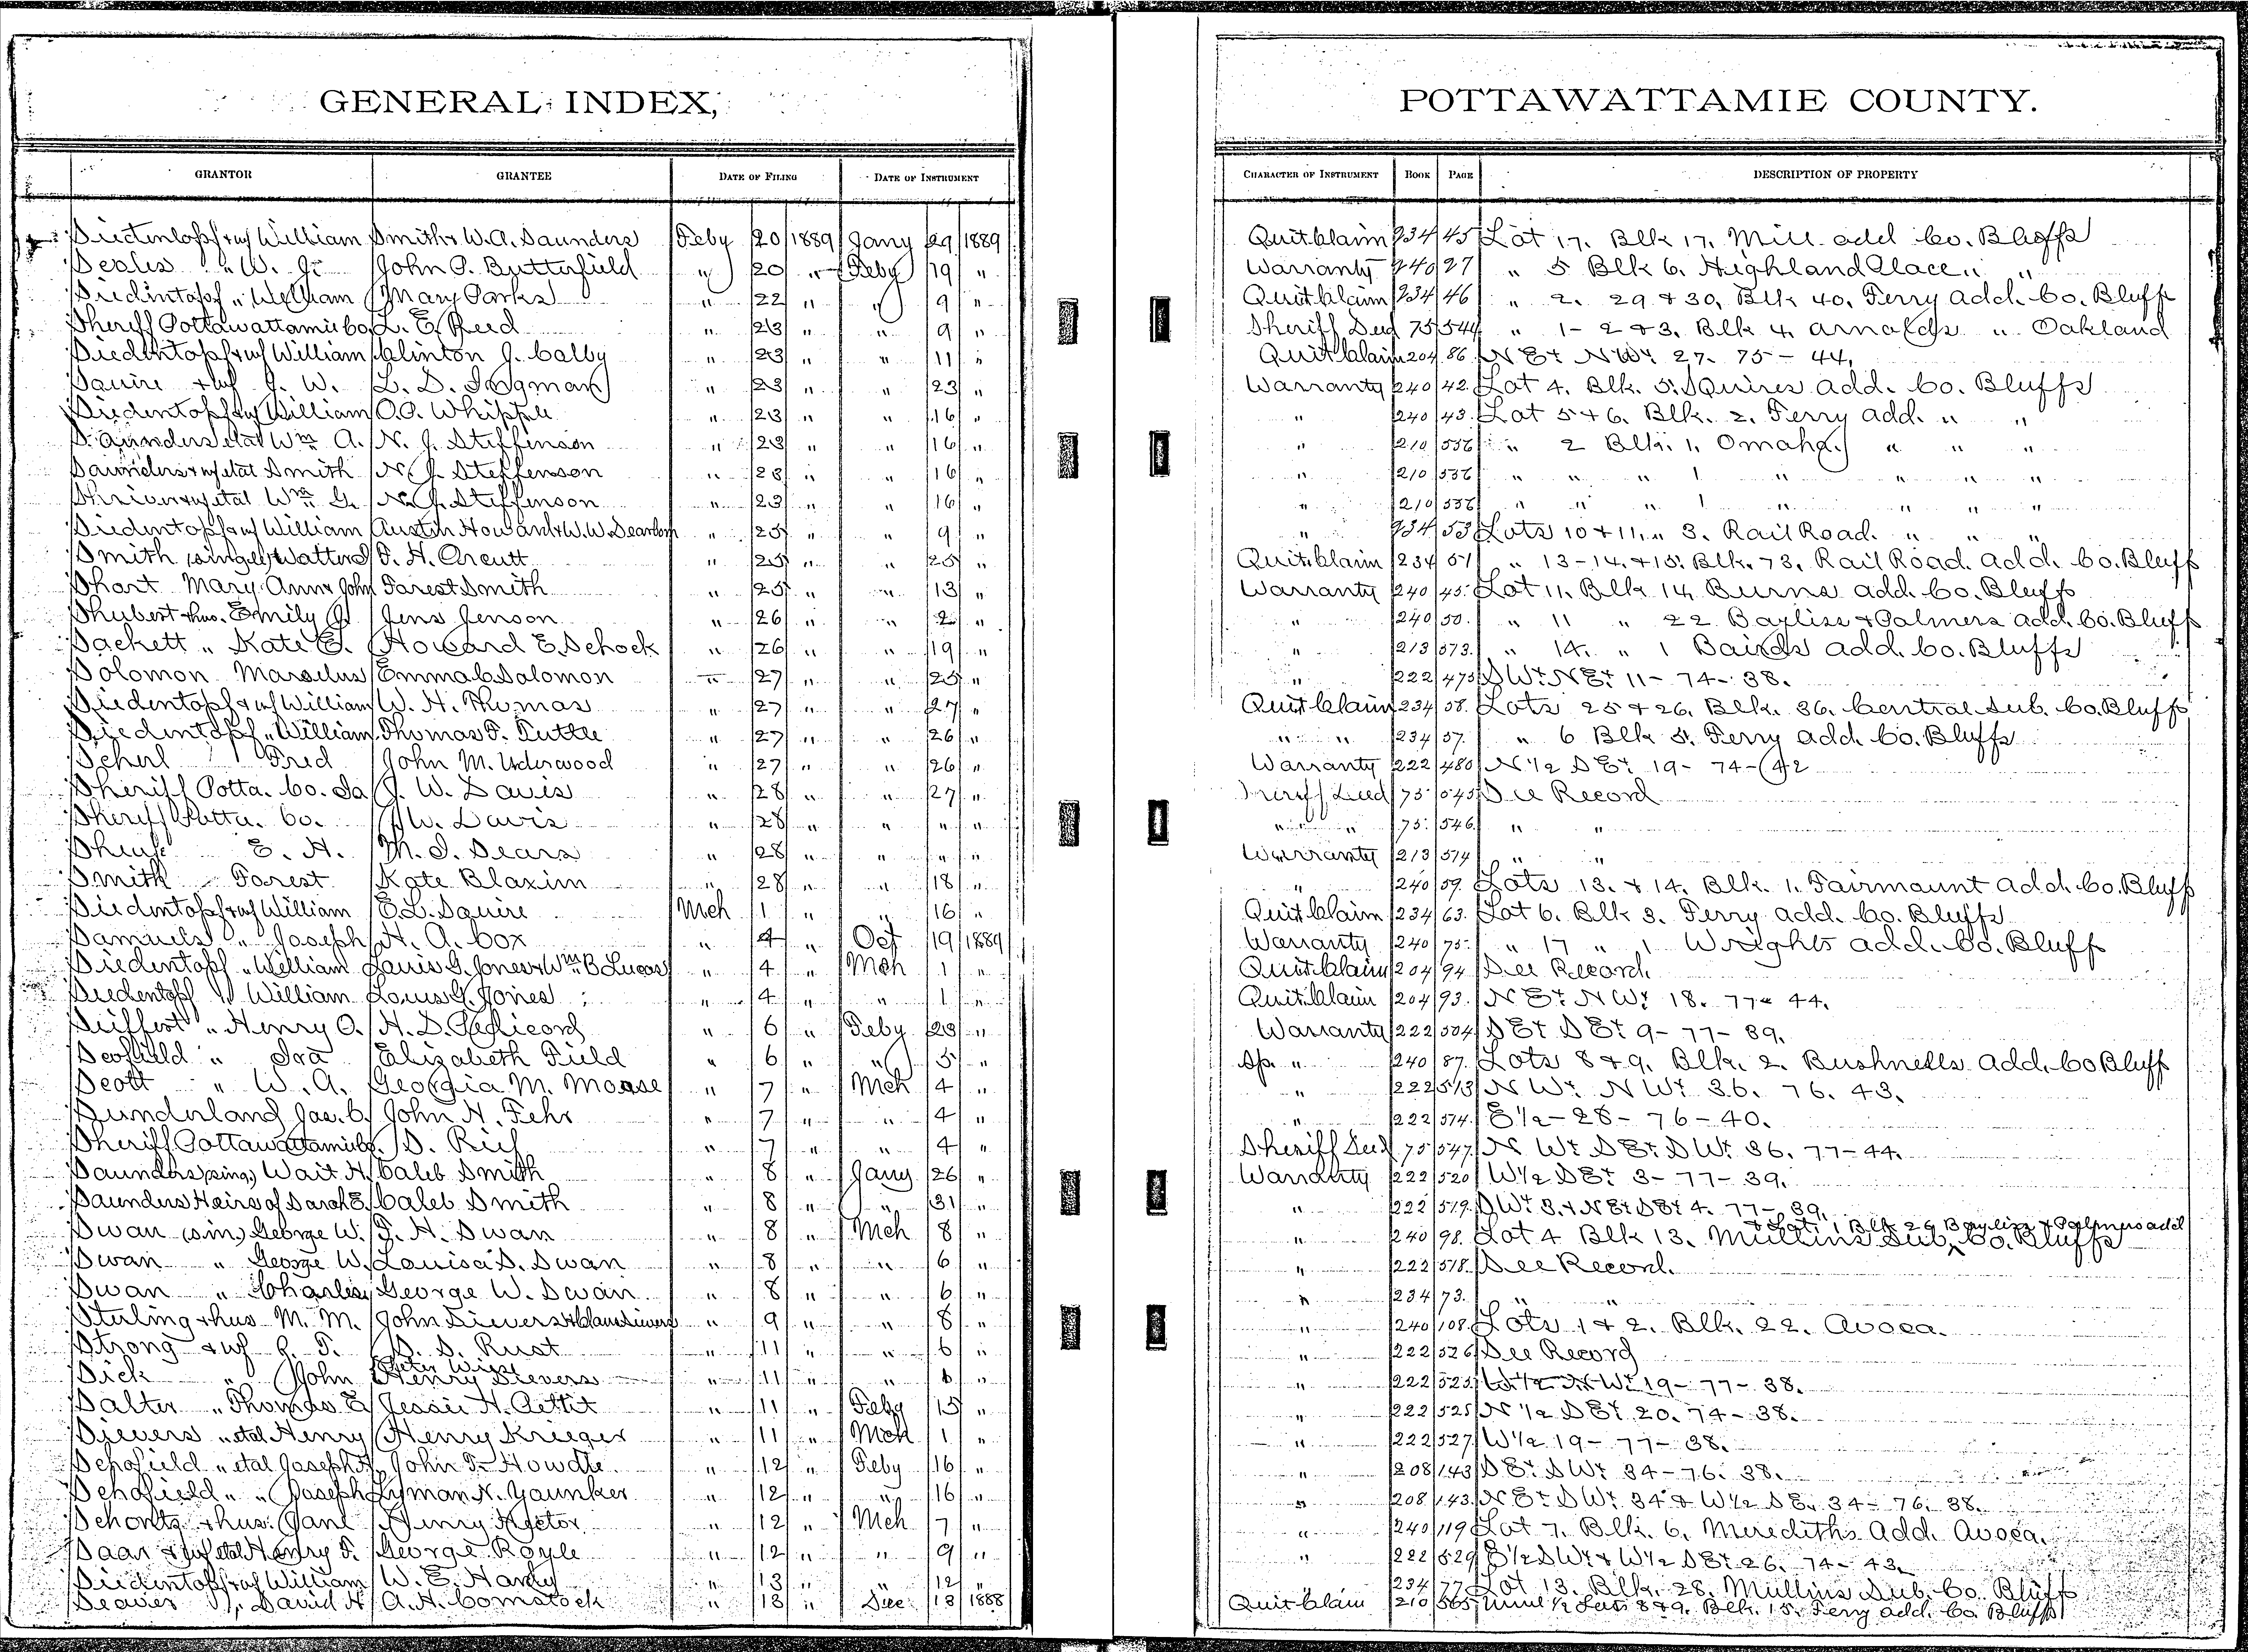 GENERAL INDEX,
POTTAWATTAMIE COUNTY.
GRANTOR GRANTEE DATE OF FILING DATE OF INSTRUMENT CHARACTER OF INSTRUMENT BOOK PAGE DESCRIPTION OF PROPERTY
Siedentopf & wf William Smith & W. A. Saunders Feby 20 1889 Jany 29 1889 Quit Claim 234 45 Lot 17. Blk 17. Mill add Co. Bluffs
Beales " W. John P. Butterfield " 20 " Feby 19 " Warranty 240 27 " 5 Blk 6. Highland Place " "
Siedintopf " William Mary Parks " 22 " " 9 " Quit Claim 234 46 " 2. 29 & 30, Blk 40, Ferry add. Co. Bluff
Sheriff Pottawattamie Co. L. E. Reed " 23 " " 9 " Sheriff Deed 75 544 " 1 - 2 & 3. Blk 4. Arnolds " Oakland
Siedentopf & wf William Clinton J. Colby " 23 " " 11 " Quit Claim 204 86 NE¼ NW¼ 27. 75 - 44.
Squire & wf J. W. L. D. " 23 " " 23 " Warranty 240 42. Lot 4. Blk. 5. Squires add. Co. Bluffs
Siedentopf & wf William O. P. Whipple " 23 " " 16 " " 240 43. Lot 5 & 6. Blk. 2. Ferry add. " "
Saunders etal Wm A. N. J. Steffinson " 23 " " 16 " " 210 536 " 2 Blk. 1. Omaha " " "
Saunders & wf etal Smith N. J. Steffenson " 23 " " 16 " " 210 536 " " " 1 " " " "
Shriver & wf etal Wm G. N. J. Steffinson " 23 " " 16 " " 210 536 " " " 1 " " " "
Siedentopf & wf William Austin Howard & W. W. Dearborn " 25 " " 9 " " 234 53 Lots 10 & 11. " 3. Rail Road. " " "
Smith (single) Watterd F. H. Orcutt " 25 " " 25 " Quit Claim 234 51 " 13-14. & 15. Blk. 73. Rail Road. add. Co. Bluff
Short Mary Ann & John Forest Smith " 25 " " 13 " Warranty 240 45. Lot 11. Blk 14. Burns add. Co. Bluffs
Shubert & hus. Emily J. Jens Jenson " 26 " " 2 " " 240 50. " 11 " 22 Bayliss & Palmers add. Co. Bluff
Sackett " Kate E. Howard E. Schock " 26 " " 19 " " 213 573. " 14. " 1 Bairds add. Co. Bluffs
Solomon Marselus Emma C. Solomon " 27 " " 25 " " 222 475 SW¼ NE¼ 11 - 74 - 38.
Siedentopf & wf William W. H. Thomas " 27 " " 27 " Quit Claim 234 58. Lots 25 & 26. Blk. 36. Central Sub. Co. Bluff
Siedentopf " William Thomas F. Tuttle " 27 " " 26 " " " 234 57. " 6 Blk 5. Ferry add. Co. Bluffs
Scherl Fred John M. Uderwood " 27 " " 26 " Warranty 222 480 N½ SE¼ 19 - 74 - 42
Sheriff Potta. Co. Ia J. W. Davis " 28 " " 27 " Sheriff Deed 75 545 See Record
Sheriff Potta. Co. J. W. Davis " 28 " " " " " " 75. 546. " "
E. A. M. I. Sears " 28 " " " " Warranty 213 574 " "
Smith Forest Kate Blaxim " 28 " " 18 " " 240 59. Lots 13. & 14. Blk. 1. Fairmount add. Co. Bluff
Siedentopf & wf William E. L. Squire Mch 1 " " 16 " Quit Claim 234 63. Lot 6. Blk 3. Ferry add. Co. Bluffs
Samuels " Joseph H. A. Cox " 4 " Oct 19 1889 Warranty 240 75. " 17 " 1 Wrights add. Co. Bluff
Siedentopf " William Louis G. Jones & Wm B Lucas " 4 " Mch 1 " Quit Claim 204 94 See Record.
Siedentopf " William Louis G. Jones " 4 " " 1 " Quit Claim 204 93. NE¼ NW¼ 18. 77 - 44.
Seiffert " Henry O. H. D. Pellicord " 6 " Feby 23 " Warranty 222 504 SE¼ SE¼ 9 - 77 - 39.
Scofield " Ira Elizabeth Field " 6 " " 5 " Sp. " 240 87. Lots 8 & 9. Blk. 2. Bushnells add. Co Bluff
Scott " W. A. Georgia M. Moase " 7 " Mch 4 " " 222 513 NW¼ NW¼ 36. 76. 43.
Sunderland Jas. C. John H. Fehr " 7 " " 4 " " 222 574. E½ - 28 - 76 - 40.
Sheriff Pottawattamie Co. D. Rief " 7 " " 4 " Sheriff Deed 75 547. NW¼ SE¼ SW¼ 36. 77 - 44.
Saunders (sing.) Wait H. Caleb Smith " 8 " Jany 26 " Warranty 222 520 W½ SE¼ 3 - 77 - 39.
Saunders Heirs of Sarah E. Caleb Smith " 8 " " 31 " " 222 519. SW¼ 3. & NE¼ SE¼ 4. 77 - 39.
Swan (sin.) George W. F. H. Swan " 8 " Mch 8 " " 240 98. Lot 4 Blk 13. Mullins Sub. Co. Bluffs & Lot 1 Blk 29 Bayliss & Palmers add
Swan " George W. Louisa S. Swan " 8 " " 6 " " 222 518. See Record.
Swan " Charles George W. Swan " 8 " " 6 " " 234 73. " "
Sterling & hus M. M. John Sievers & Claus Sievers " 9 " " 8 " " 240 108. Lots 1 & 2. Blk. 22. Avoca.
Strong & wf P. T. S. S. Rust " 11 " " 6 " " 222 526 See Record
Sick " John Peter Wiese Henry Sievers " 11 " " 6 " " 222 525 W½ NW¼ 19 - 77 - 38.
Salter " Thomas E. Jessie H. Pettit " 11 " Feby 15 " " 222 528 N½ SE¼ 20. 74 - 38.
Sievers " etal Henry Henry Krieger " 11 " Mch 1 " " 222 527 W½ 19 - 77 - 38.
Schofield " etal Joseph H. John T. Howdle " 12 " Feby 16 " " 208 143 SE¼ SW¼ 34 - 76. 38.
Schofield " " Joseph Lyman N. Yaunker " 12 " " 16 " " 208 143. NE¼ SW¼ 34 & W½ SE¼ 34 - 76 - 38.
Schontz & hus. Jane Henry Hector " 12 " Mch 7 " " 240 119 Lot 7. Blk. 6. Merediths Add. Avoca.
Saar & wf etal Henry F. George Royle " 12 " " 9 " " 222 529 E½ SW¼ & W½ SE¼ 26. 74 - 43.
Siedentopf & wf William W. E. Hardy " 13 " " 12 " " 234 77 Lot 13. Blk. 28. Mullins Sub. Co. Bluff
Seaver " David H. A. H. Comstock " 13 " Dec 13 1888 Quit Claim 210 565 ½ Lots 8 & 9. Blk. 15. Ferry add. Co. Bluffs